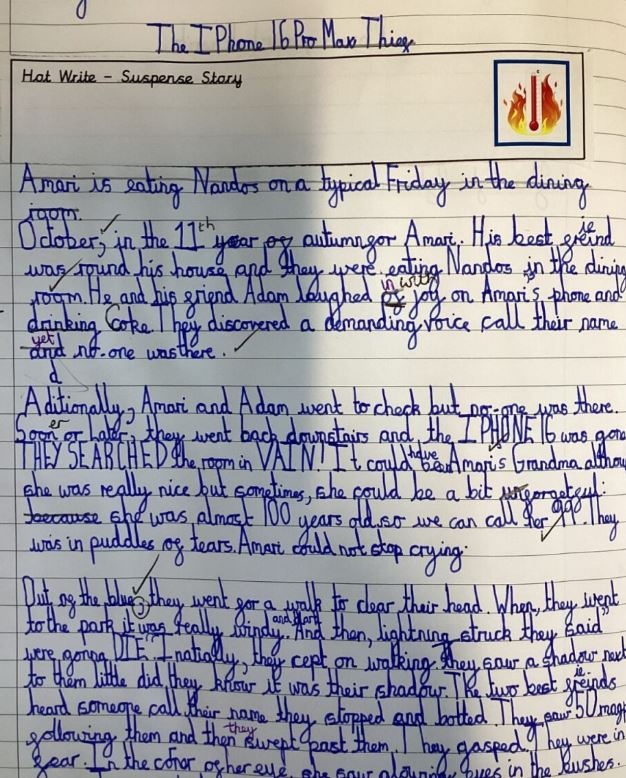 The IPhone 16 Pro Max Thief
Hot Write - Suspense Story
Amari is eating Nandos on a typical Friday in the dining
room.
October, in the 11th year of autumn for Amari. His best freind ie
was round his house and they were eating Nandos in the dining
room. He and his friend Adam laughed of in with joy on Amari's phone and
drinking Coke. They discovered a demanding voice call their name
yet and no-one was there.
d
Aditionally, Amari and Adam went to check but no-one was there.
Sooner or Later, they went back downstairs and the IPHONE 16 was gone
THEY SEARCHED the room in VAIN! It could have been Amari's Grandma althou
she was really nice but sometimes, she could be a bit unforgetful:
because she was almost 100 years old so we can call her 99. They
was in puddles of tears. Amari could not stop crying.
Out of the blue, they went for a walk to clear their head. When, they went
to the park it was really windy. And then, lightning struck they said "
were gonna DIE" Inatially, they cept on walking. They saw a shadow next
to them little did they know it was their shadow. The two best freinds ie
heard someone call their name they stopped and bolted. They saw 50 mag
following them and then they swept past them. They gasped. They were in
fear. In the corar of her eye, she saw glowing eyes in the bushes.